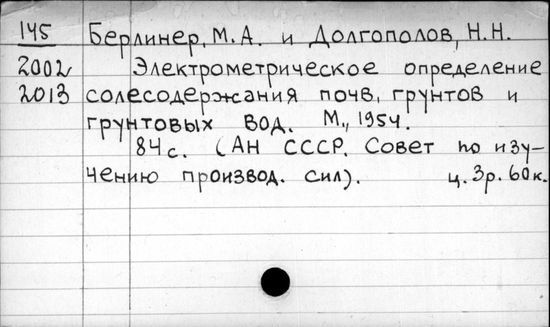 145 Берлинер, М.А. и Долгополов, Н.Н.
2002 Электрометрическое определение
2013 солесодержания почв, грунтов и
грунтовых вод. М., 1954.
84с. (АН СССР. Совет по изу-
чению производ. сил). ц. 3р. 60к.